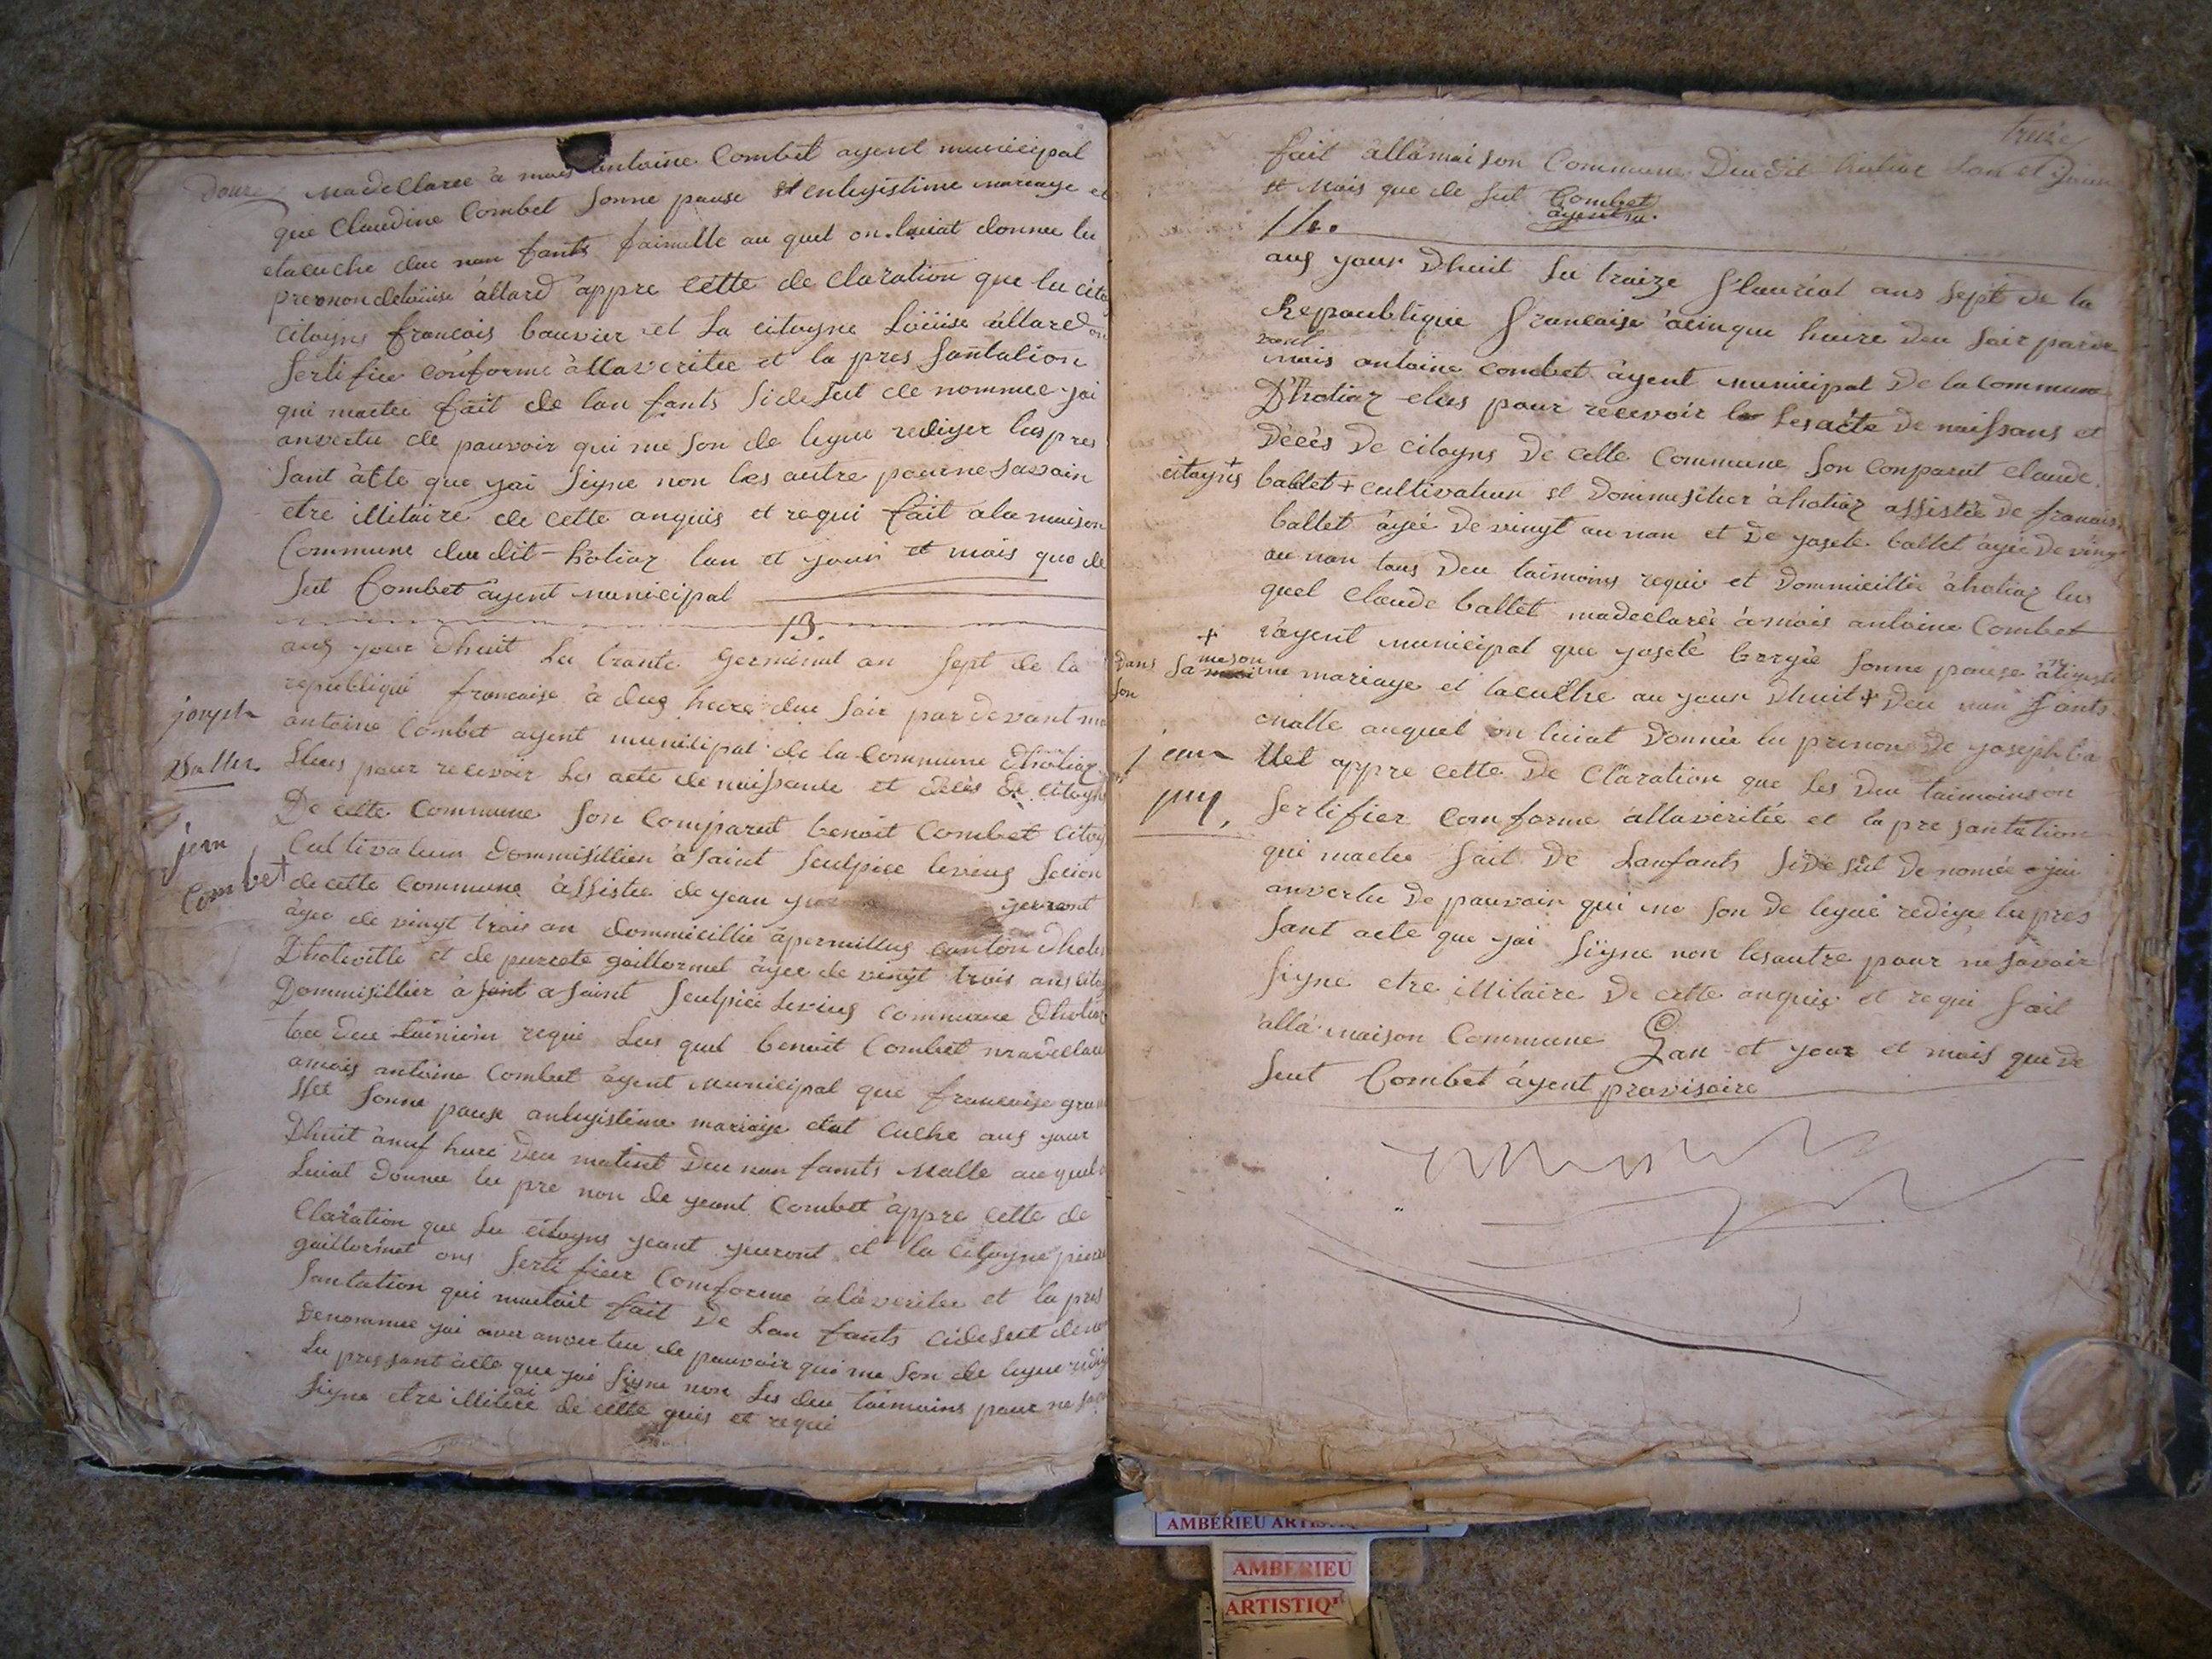 douze
madeclaree à mois antoine Combet agent municipal
que Claudine Combet sonne pause et enlegistime mariage et
etaceuche due nan fants faimelle au quel on luiat donnee lu
prernon delouise allard appre cette de claration que lu cito
citoyns francois bouvier et la citoyne Loüise allard on
sertifiee conforme allaveritee et la pres santation
qui maetee fait de lan fants side sut de nommee jai
anvertu de pauvoir qui me son de legue rediger lus pres
sant acte que jai signe non les autre pour ne savoir
etre illitaire de cette anquis et requi fait a la maison
Commune du dit hotiaz lan et jour et mais que de
sut Combet agent municipal
13.
auz jour dhuit Lu trante germinal an sept de la
republique francaise à deuz heire due soir par devant mo
antoine Combet agent municipal de la commune dhotiaz
Eleus pour recevoir les acte de naissance et deces de citoyns
De cette Commune son Comparut benoit Combet citoy
Cultivateur dommisillien à saint sulpice levieuz secion
de cette commune assistee de jean
jerront
agee de vingt trois an dommicillie
canton dhote
Dhoteville et de pierrete guillermet agee de vingt trois ans cito
Dommisillier à saint a saint sulpice Levieuz commune dhotiaz
tou deu taimoin requi Lus quel benoit Combet madeclare
amois antoine Combet agent municipal que francoise
sonne pause anlegistime mariage etat cuche auz jour
Dhuit à neuf heure deu matint deu nan fants malle au quel o
Luiat donnee lu pre non de jeant Combet appre cette de
Claration que Lu citoyns jeant jeuront et la citoyne pierre
guillermet ons sertifieer Comforme alà veritee et la pres
santation qui maetait fait de Lan fants cide sut deno
denommee jai aver anvertu de pauvoir qui me son de legue redig
Lu pres sant acte que jai signe non les deu taimoins pour ne sa
signe etre illiterai de cette quis et requi
joseph
Ballet
jean
Combet
treize
fait alla maison Commune Du dit hotiaz Lan et Jour
et Mois que de sut Combet
agent m.
14.
auz jour Dhuit Lu traize flaurial ans sept de la
Republique francaise acinque huire deu sair par de
vant
mois antoine combet agent municipal De la commune
D'hotiaz elus pour recevoir les acte de naissans et
Décès De citoyns De cette Commune son conparut claude
citoyns + ballet + cultivateur et dommisilier à hotiaz assistée de francois
ballet agée De vingt au nan et De josete ballet agée De ving
au nan tous Deu taimoins requi et Dommicillie àhotiaz lus
quel Claude ballet madeclarée à mois antoine Combet
agent municipal que josete bergée sonne pause
mariage et lacuche au jour dhuit + Deu nan fants
+ dans sa meson
malle auquel on luiat Donnée lu prenon De joseph ba
llet appre cette De Claration que Les Deu taimoins on
sertifier Comforme allaveritée et la pre santation
qui maetee fait De Lanfants side sut de nomée jai
anvertu De pauvoir qui me son De legué redige lu pres
sant acte que jai signe non les autre pour ne savoir
signe etre illitaire De cette anquis et requi fait
alla maison Commune Lan et jour et mois que de
seut Combet agent provisoire
jean
AMBERIEU
AMBERIEU
ARTISTIQ